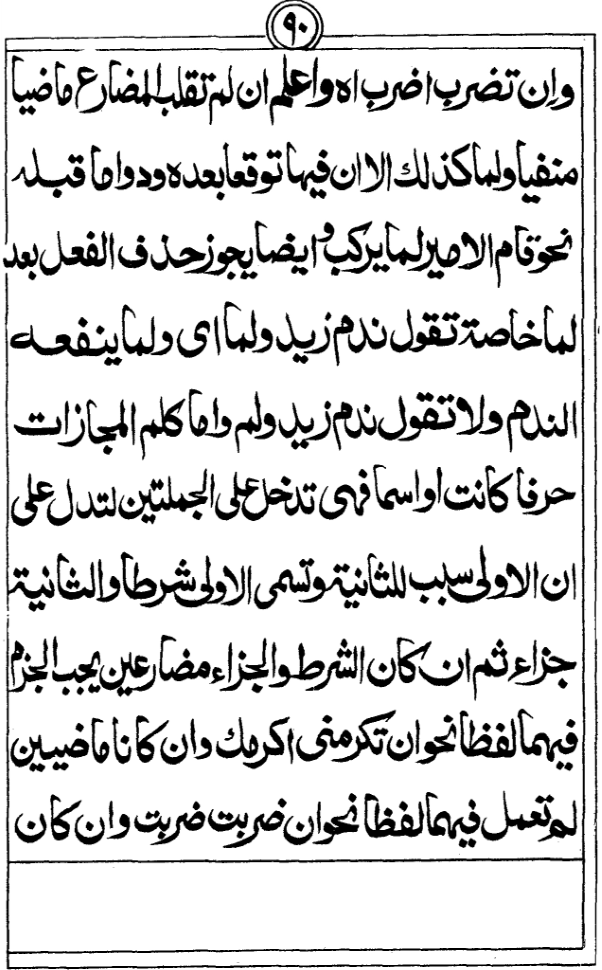 ٩٠
وان تضرب اضرب اه واعلم ان لم تقلب المضارع ماضيا
منفيا ولما كذلك الا ان فيها توقعا بعده ودواما قبله
نحو قام الامير لما يركب و ايضا يجوز حذف الفعل بعد
لما خاصة تقول ندم زيد ولما اى ولما ينفعه
الندم ولا تقول ندم زيد ولم واما كلم المجازات
حرفا كانت او اسما فهى تدخل على الجملتين لتدل على
ان الاولى سبب للثانية وتسمى الاولى شرطا والثانية
جزاء ثم ان كان الشرط والجزاء مضارعين يجب الجزم
فيهما لفظا نحو ان تكرمنى اكرمك وان كانا ماضيين
لم تعمل فيهما لفظا نحو ان ضربت ضربت وان كان